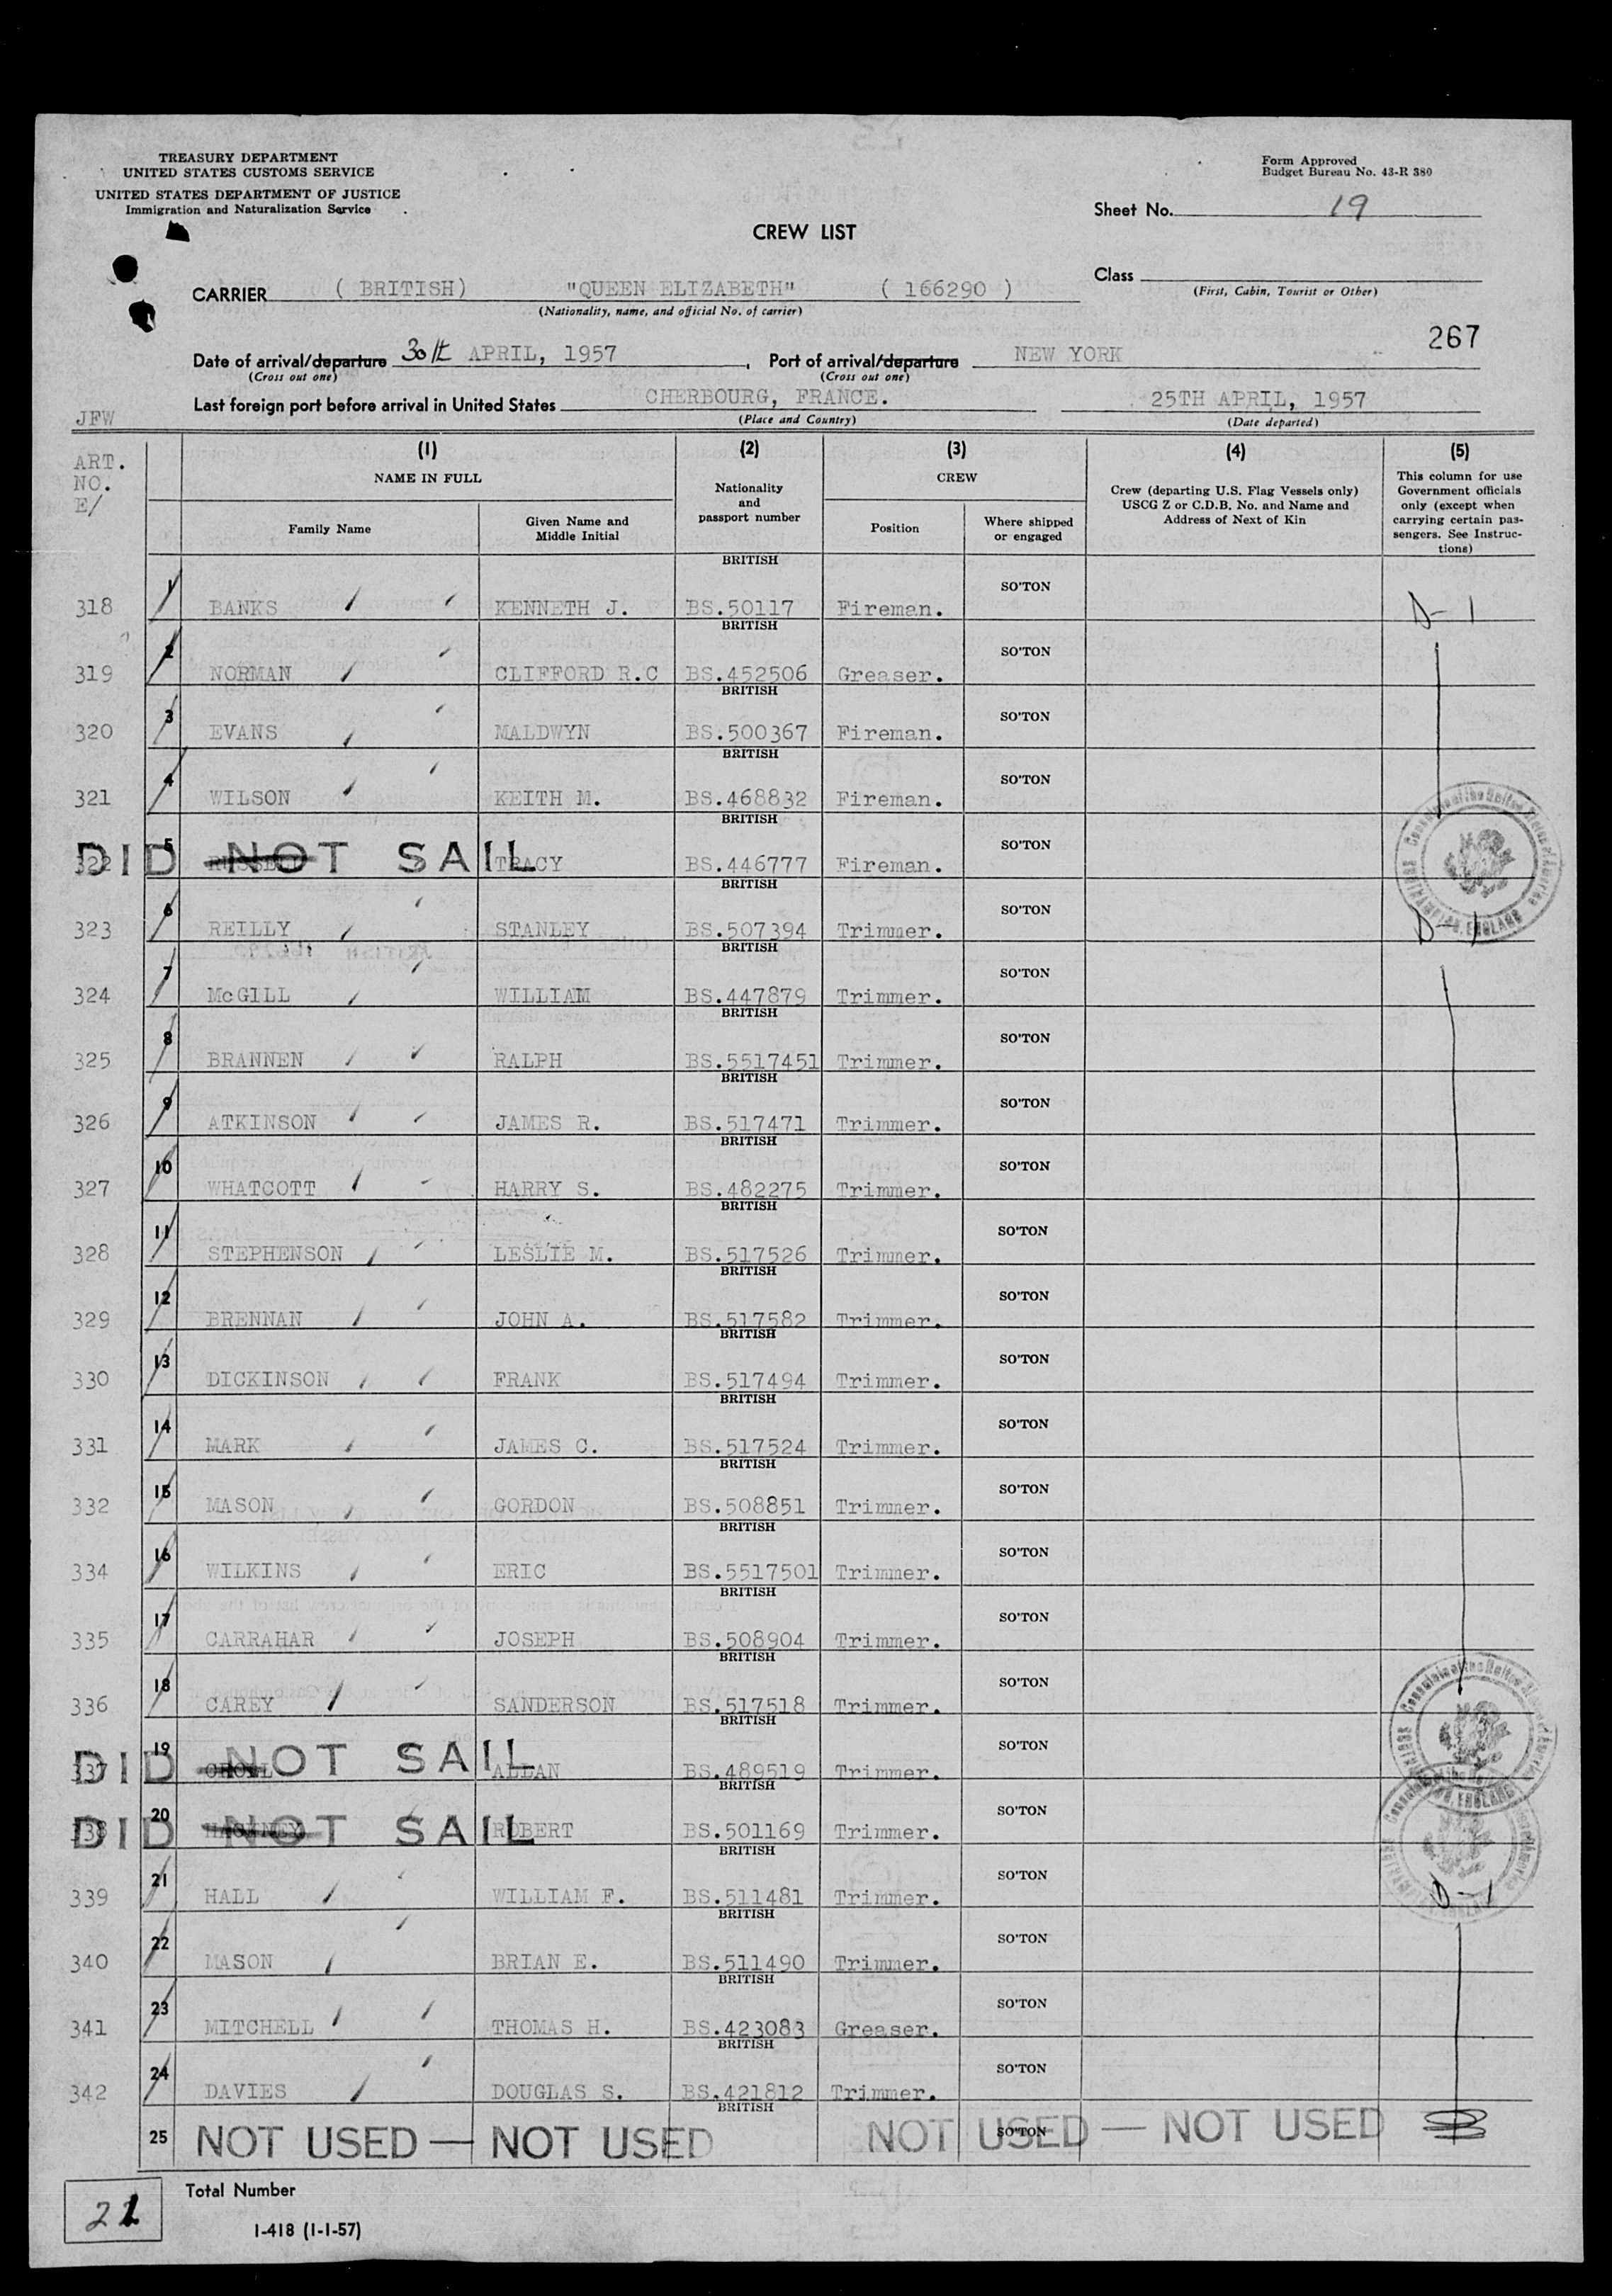 TREASURY DEPARTMENT
UNITED STATES CUSTOMS SERVICE
UNITED STATES DEPARTMENT OF JUSTICE
Immigration and Naturalization Service
Form Approved
Budget Bureau No. 43-R 380
Sheet No. 19
CREW LIST
Class
(First, Cabin, Tourist or Other)
CARRIER ( BRITISH) "QUEEN ELIZABETH" ( 166290 )
(Nationality, name, and official No. of carrier)
267
Date of arrival/departure 30th APRIL, 1957, Port of arrival/departure NEW YORK
(Cross out one) (Cross out one)
Last foreign port before arrival in United States CHERBOURG, FRANCE. 25TH APRIL, 1957
(Place and Country) (Date departed)
JFW
ART. NO. E/
(1) (2) (3) (4) (5)
NAME IN FULL
Family Name
Given Name and Middle Initial
Nationality and passport number
CREW
Position
Where shipped or engaged
Crew (departing U.S. Flag Vessels only) USCG Z or C.D.B. No. and Name and Address of Next of Kin
This column for use Government officials only (except when carrying certain passengers. See Instructions)
318 1 BANKS KENNETH J. BRITISH BS.50117 Fireman. SO'TON D-1
319 2 NORMAN CLIFFORD R.C BRITISH BS.452506 Greaser. SO'TON
320 3 EVANS MALDWYN BRITISH BS.500367 Fireman. SO'TON
321 4 WILSON KEITH M. BRITISH BS.468832 Fireman. SO'TON
322 5 DID NOT SAIL TRACY BRITISH BS.446777 Fireman. SO'TON
323 6 REILLY STANLEY BRITISH BS.507394 Trimmer. SO'TON D-1
324 7 McGILL WILLIAM BRITISH BS.447879 Trimmer. SO'TON
325 8 BRANNEN RALPH BRITISH BS.5517451 Trimmer. SO'TON
326 9 ATKINSON JAMES R. BRITISH BS.517471 Trimmer. SO'TON
327 10 WHATCOTT HARRY S. BRITISH BS.482275 Trimmer. SO'TON
328 11 STEPHENSON LESLIE M. BRITISH BS.517526 Trimmer. SO'TON
329 12 BRENNAN JOHN A. BRITISH BS.517582 Trimmer. SO'TON
330 13 DICKINSON FRANK BRITISH BS.517494 Trimmer. SO'TON
331 14 MARK JAMES C. BRITISH BS.517524 Trimmer. SO'TON
332 15 MASON GORDON BRITISH BS.508851 Trimmer. SO'TON
334 16 WILKINS ERIC BRITISH BS.5517501 Trimmer. SO'TON
335 17 CARRAHAR JOSEPH BRITISH BS.508904 Trimmer. SO'TON
336 18 CAREY SANDERSON BRITISH BS.517518 Trimmer. SO'TON
337 19 DID NOT SAIL ALLAN BRITISH BS.489519 Trimmer. SO'TON
338 20 DID NOT SAIL ROBERT BRITISH BS.501169 Trimmer. SO'TON
339 21 HALL WILLIAM F. BRITISH BS.511481 Trimmer. SO'TON D-1
340 22 MASON BRIAN E. BRITISH BS.511490 Trimmer. SO'TON
341 23 MITCHELL THOMAS H. BRITISH BS.423083 Greaser. SO'TON
342 24 DAVIES DOUGLAS S. BRITISH BS.421812 Trimmer. SO'TON
25 NOT USED — NOT USED BRITISH NOT USED — NOT USED SO'TON
Total Number
I-418 (1-1-57)